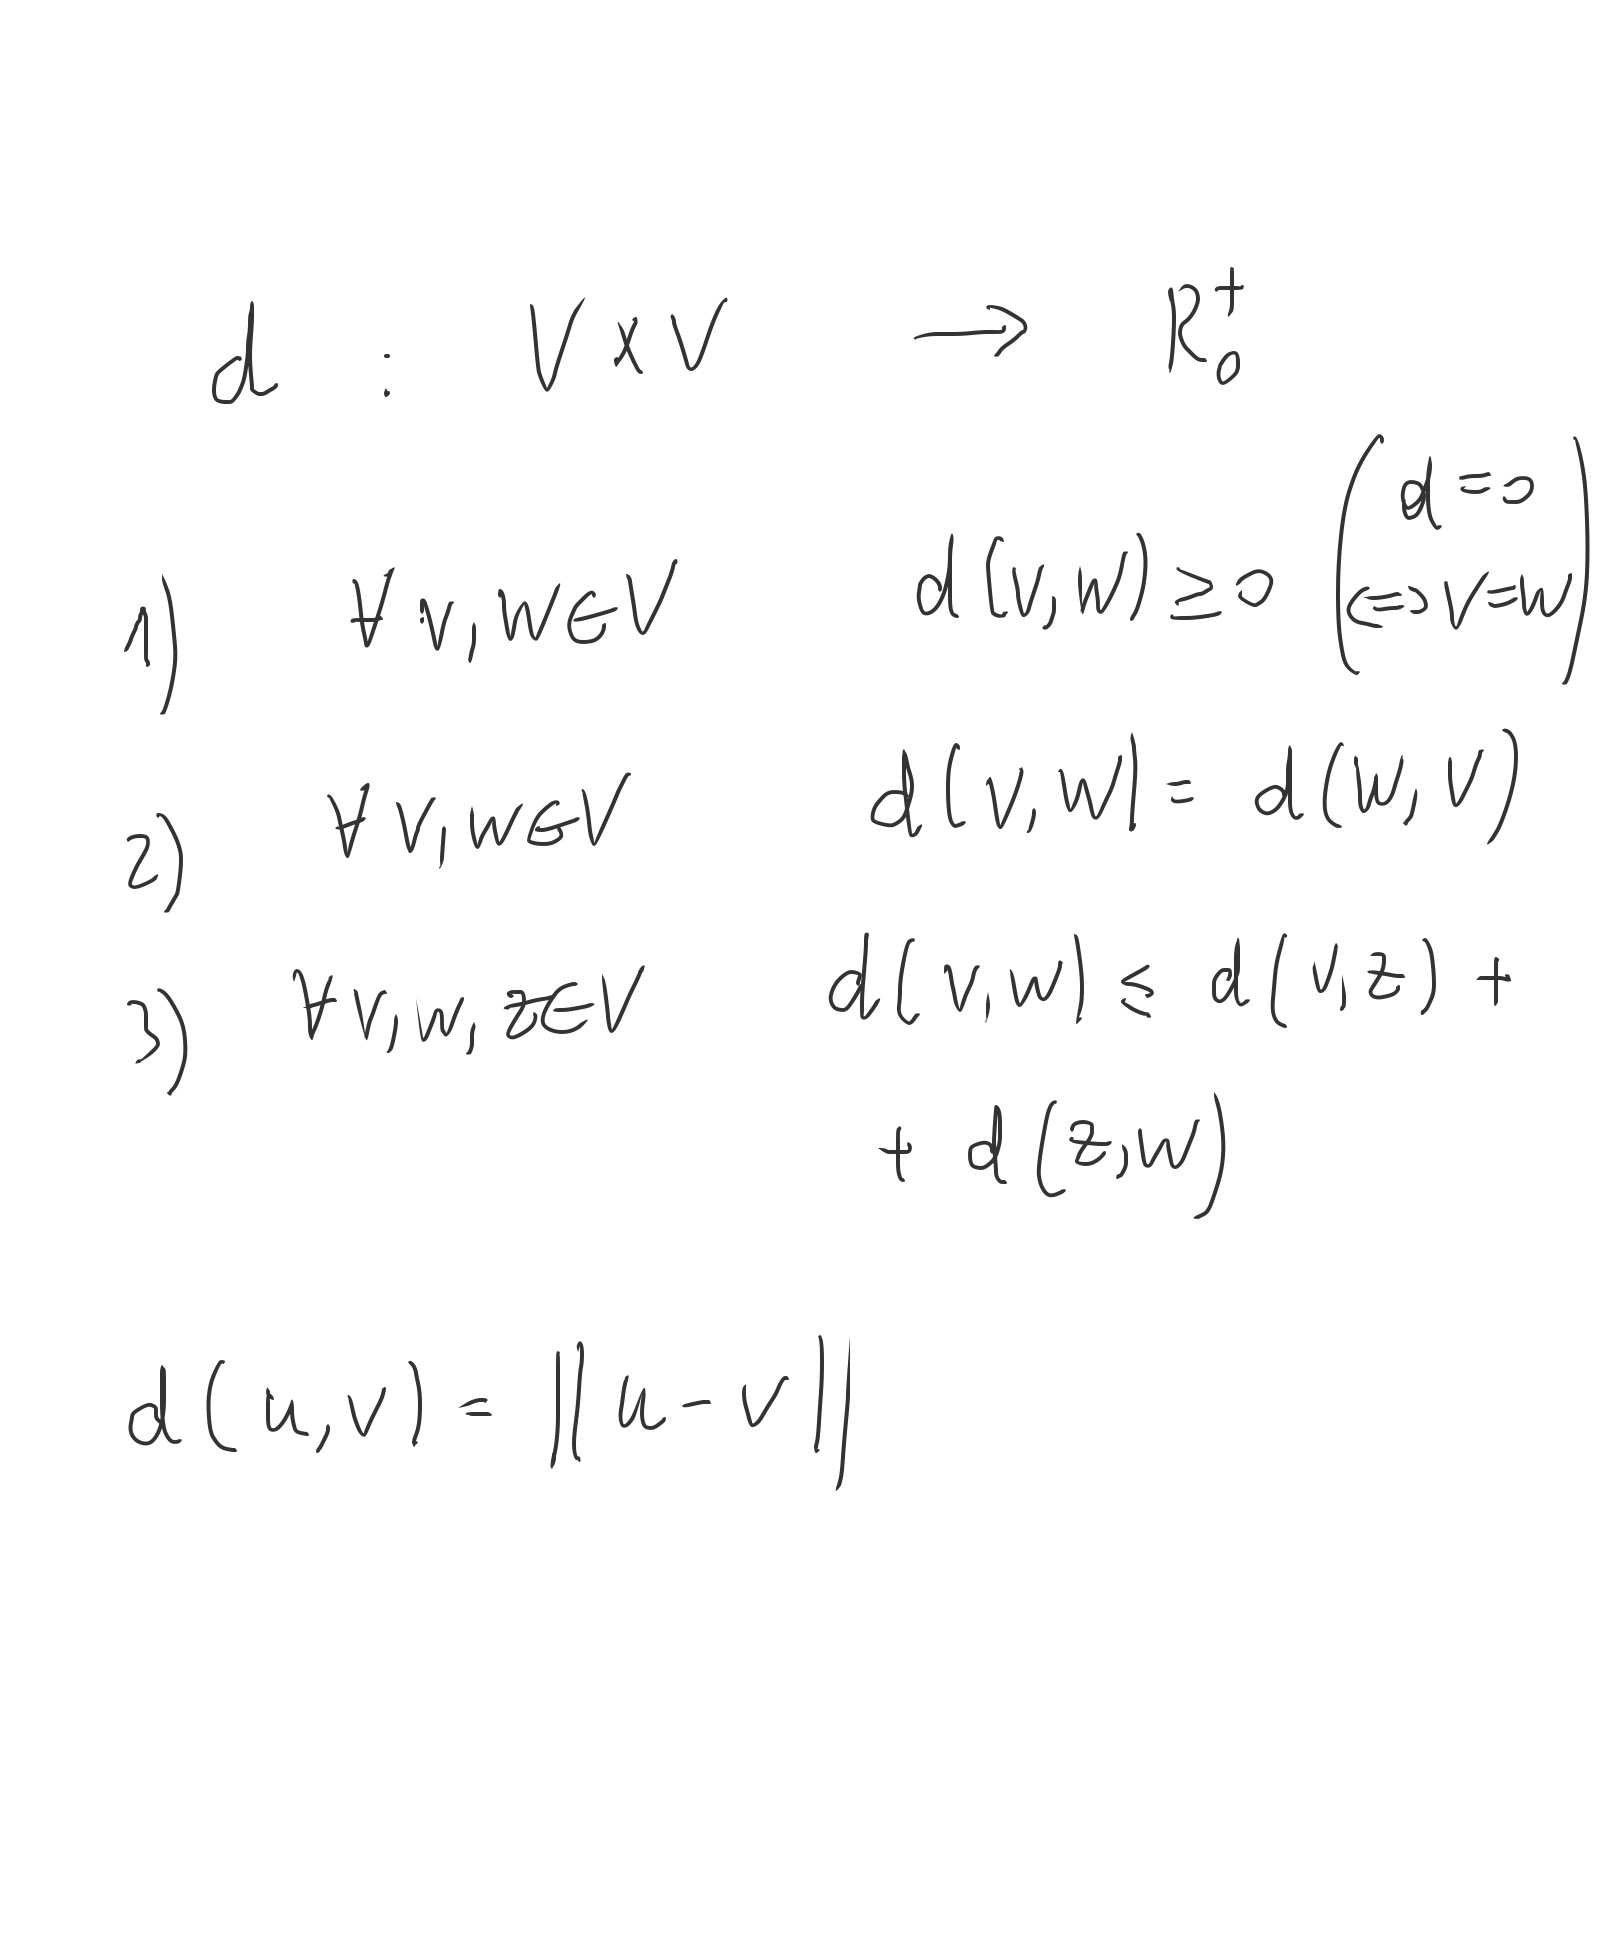 d : V × V → R₀⁺
1) ∀ v, w ∈ V d(v, w) ≥ 0 (d = 0 ⇔ v = w)
2) ∀ v, w ∈ V d(v, w) = d(w, v)
3) ∀ v, w, z ∈ V d(v, w) ≤ d(v, z) +
+ d(z, w)
d(u, v) = ||u - v||